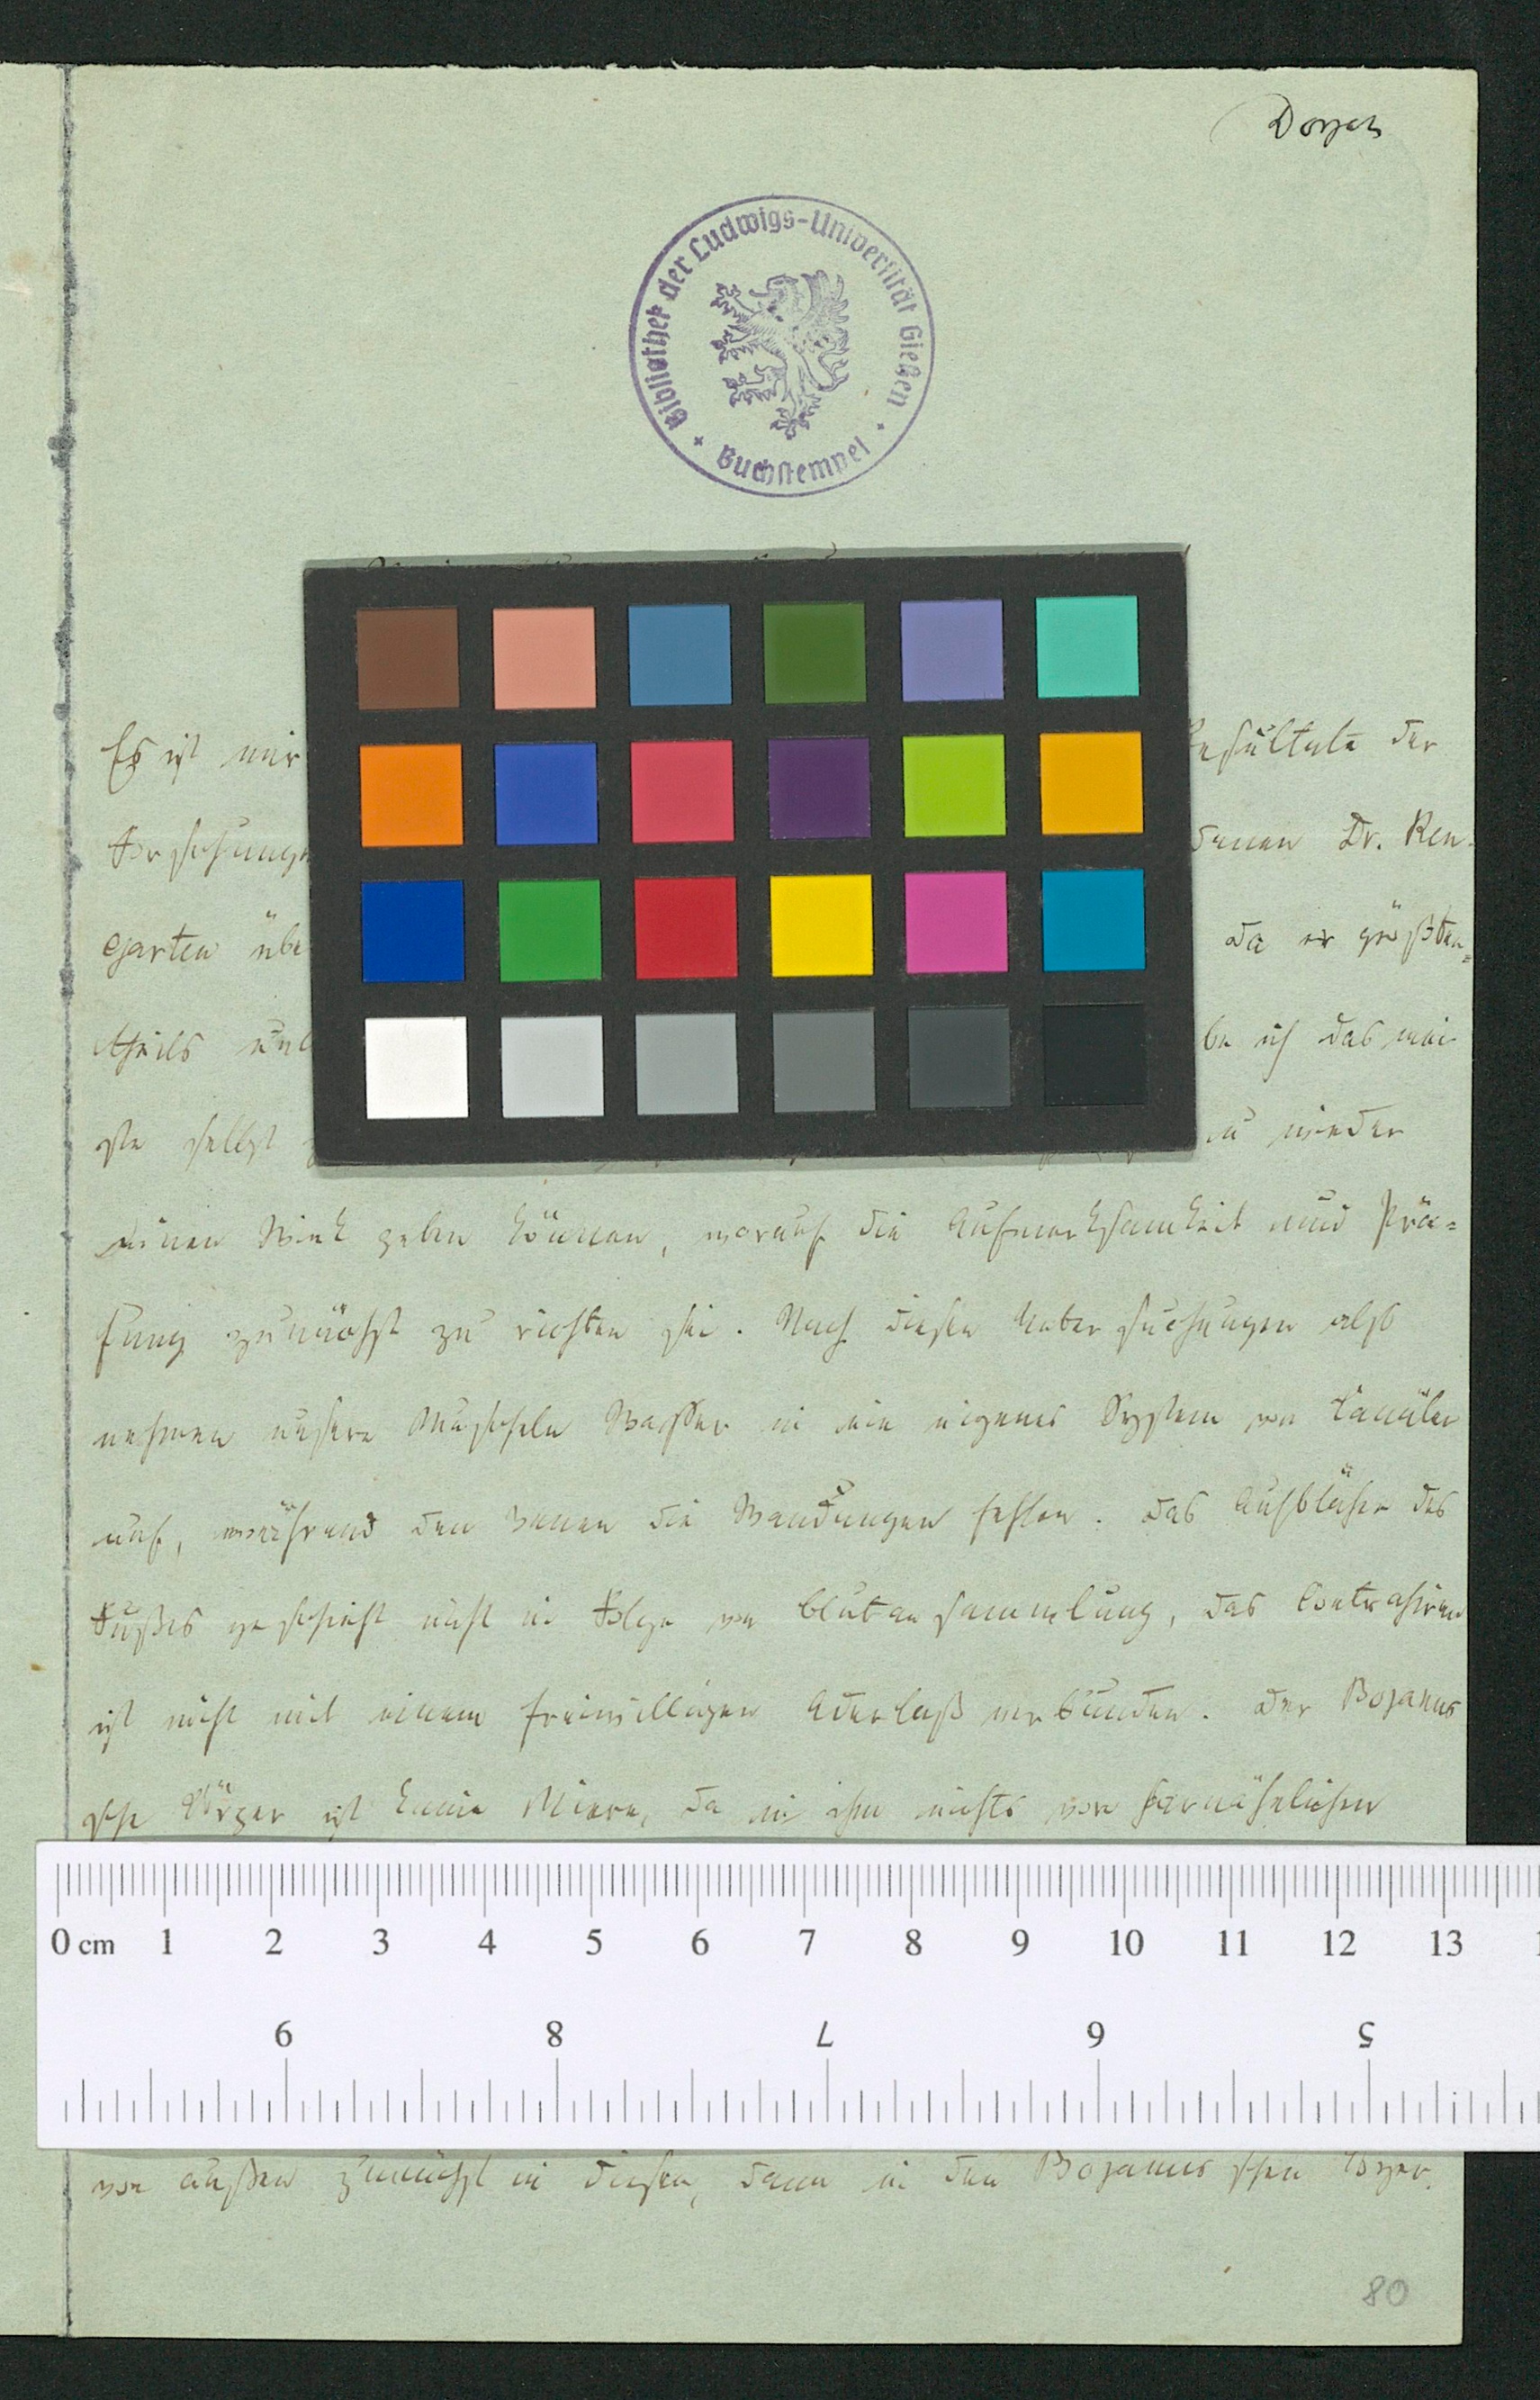 Bibliothek der Ludwigs-Universität Gießen
+ Buchstempel +
Es ist mir Resultate der
Forschungen Dr. Ren-
garten übe da er größten=
theils ich das mei
ste selbst wieder
einen Wink geben können, worauf die Aufmerksamkeit und Prü=
fung zunächst zu richten sei. Nach diesen Untersuchungen also
nehmen unsere Muscheln Wasser in ein eigenes System von Canälen
auf, während den Venen die Wandungen fehlen. Das Aufblähen des
Fußes geschieht nicht in Folge von Blutansammlung, das Contrahiren
ist nicht mit einem freiwilligen Aderlaß verbunden. Der Bojanus
sche Körper ist keine Niere, da in ihm nichts von harnähnlichen
0 cm 1 2 3 4 5 6 7 8 9 10 11 12 13
9 8 7 6 5
von außen zunächst in diesen, dann in den Bojanusschen Körper.
80